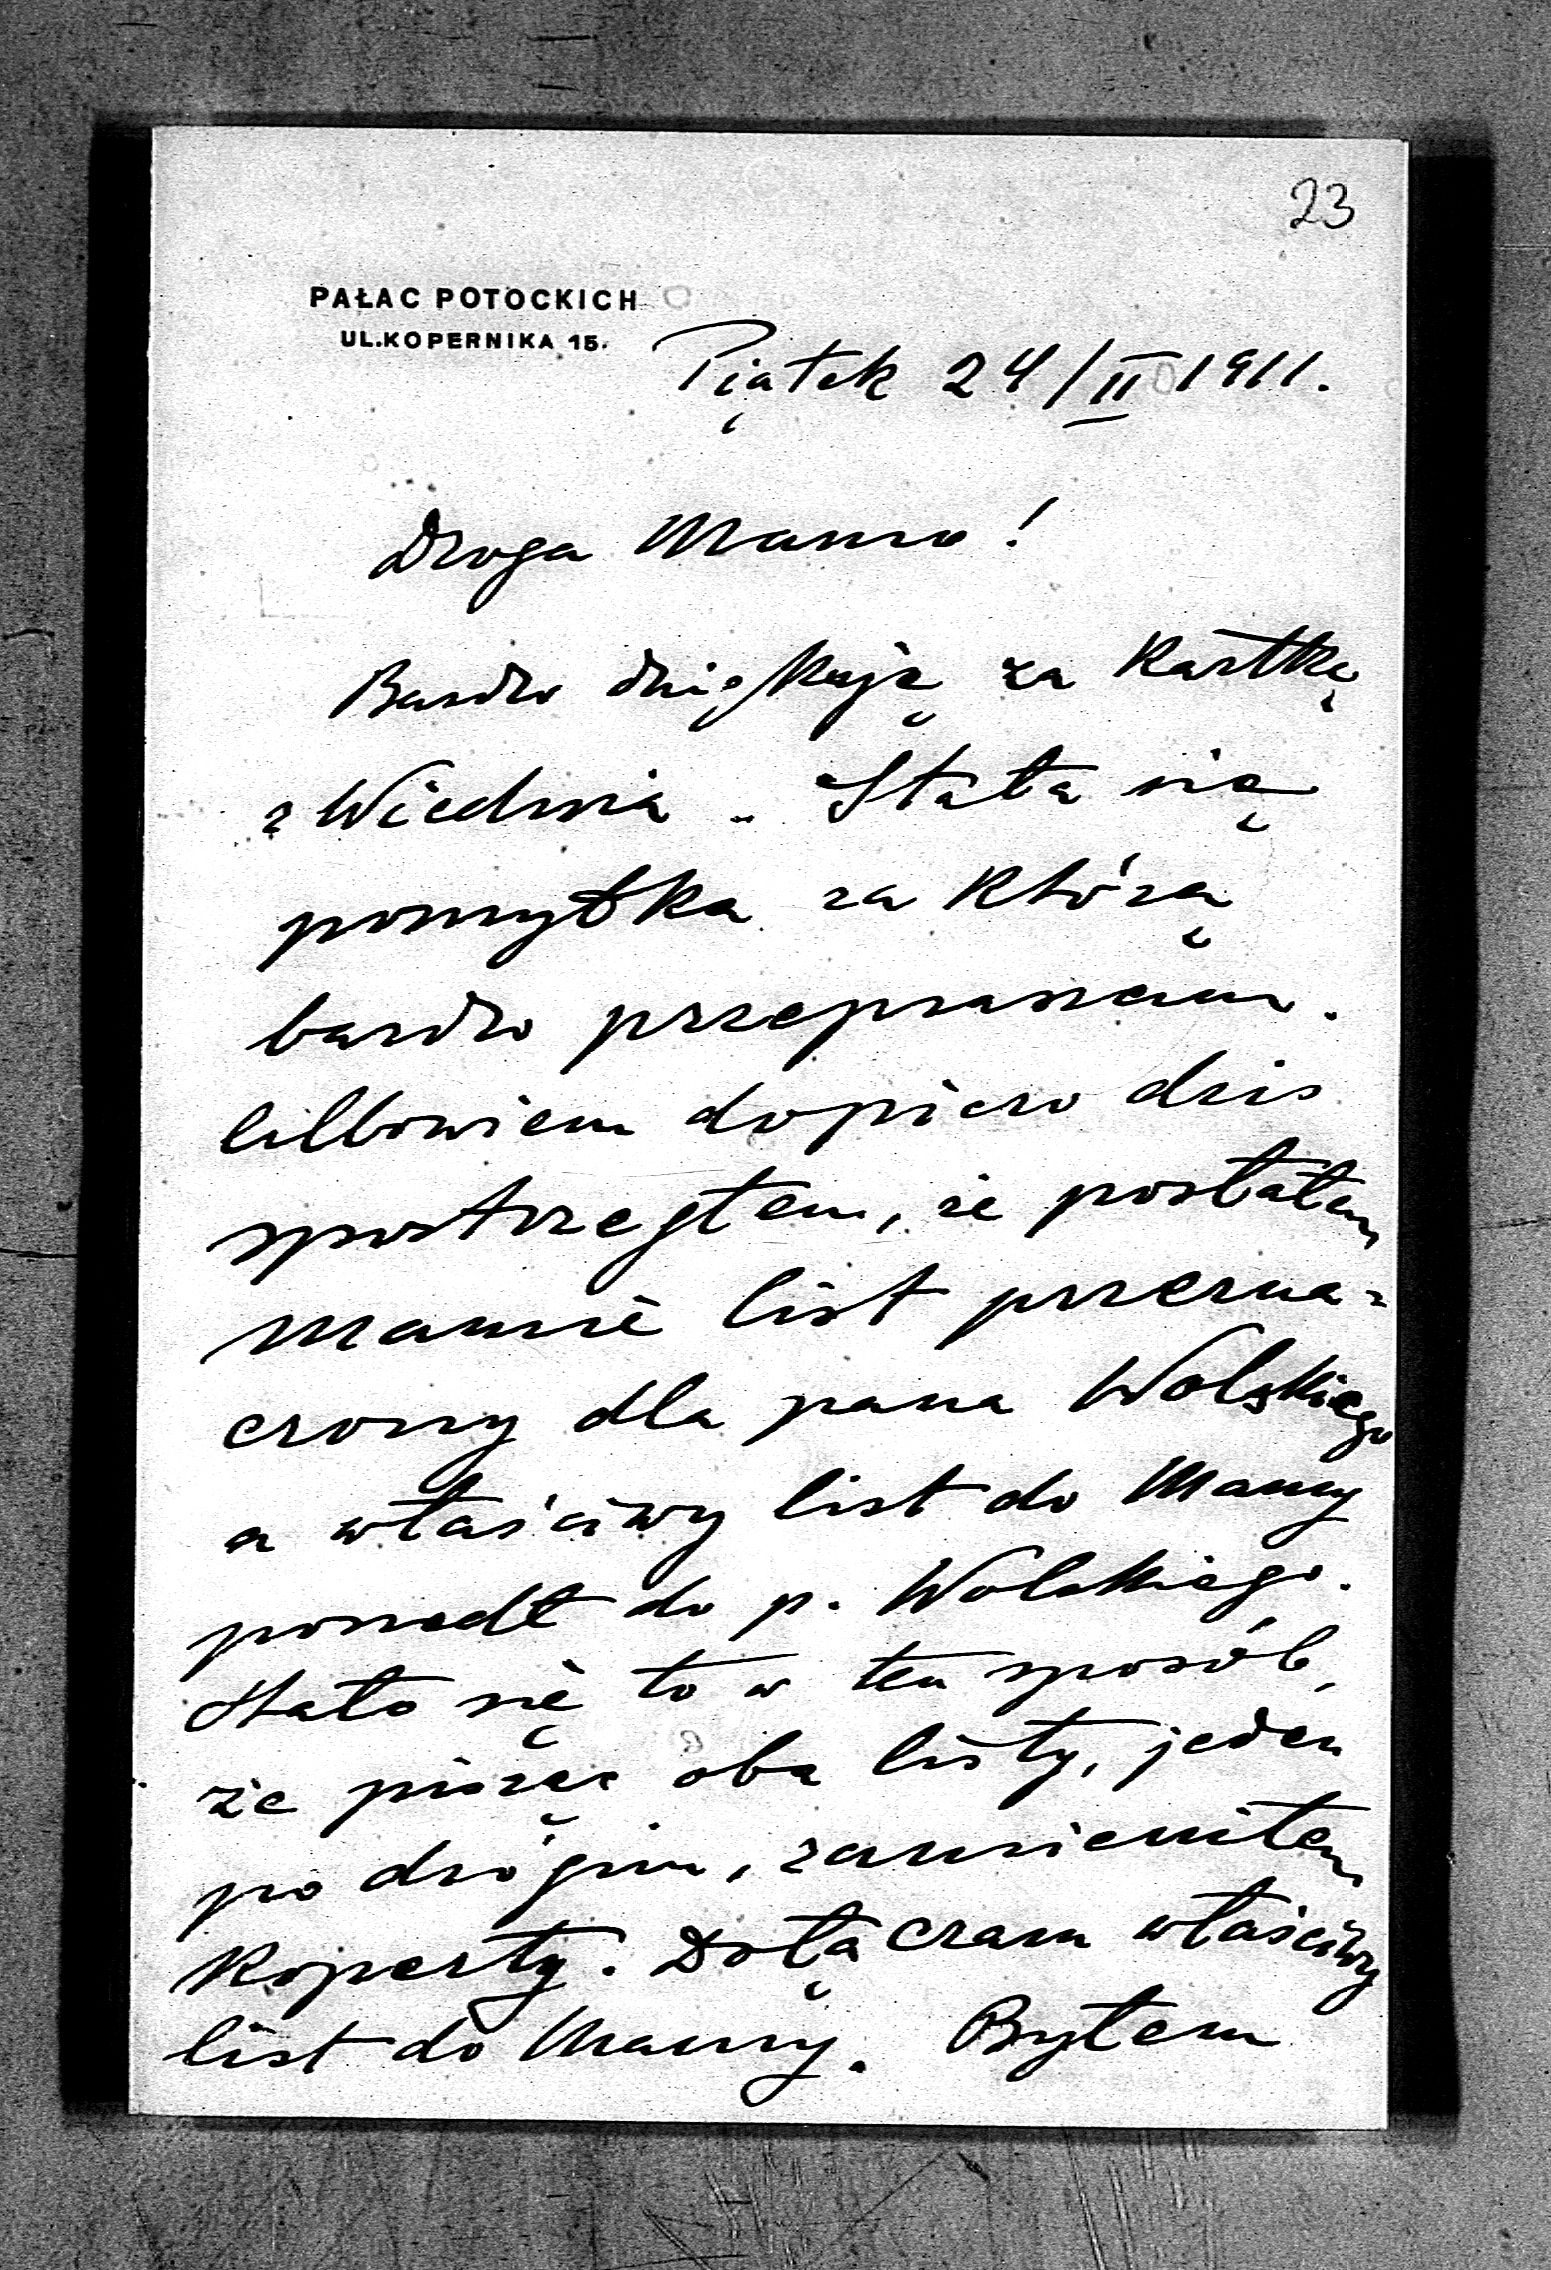 23
PAŁAC POTOCKICH
UL.KOPERNIKA 15.
Piątek 24/II 1911.
Droga Mamo!
Bardzo dziękuję za kartkę
z Wiednia. Stała się
pomyłka za którą
bardzo przepraszam.
bowiem dopiero dzis
spostrzegłem, że posłałem
Mamie list przezna=
czony dla pana Wolskiego
a właściwy list do Mamy
poszedł do p. Wolskiego.
Stało się to w ten sposób,
że pisząc oba listy, jeden
po drógim, zamieniłem
koperty. Dołączam właściwy
list do Mamy. Byłem